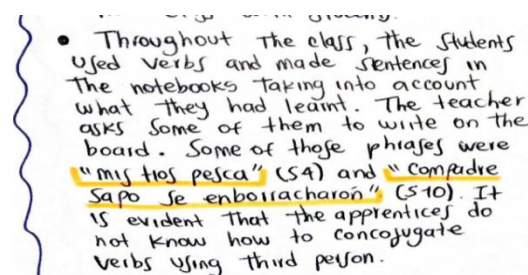 • Throughout The class, The students
used verbs and made sentences in
The notebooks Taking into account
what They had learnt. The teacher
asks some of them to write on the
board. Some of those phrases were
"mis tios pesca" (S4) and "compadre
Sapo se enborracharon" (S10). It
is evident That the apprentices do
not know how to concojugate
verbs using third person.